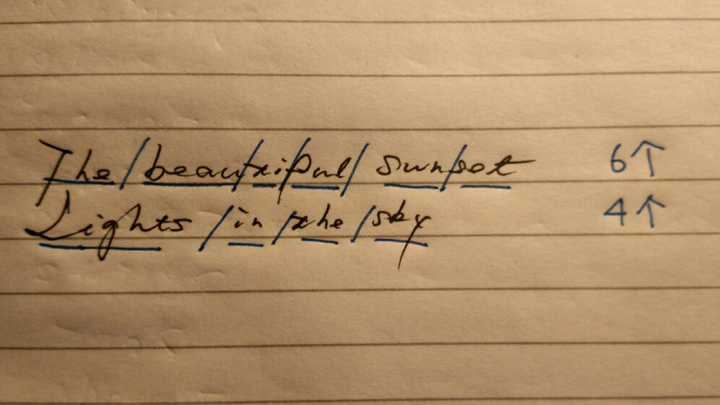 The/beau/ti/ful/sun/set 6↑
Lights/in/the/sky 4↑